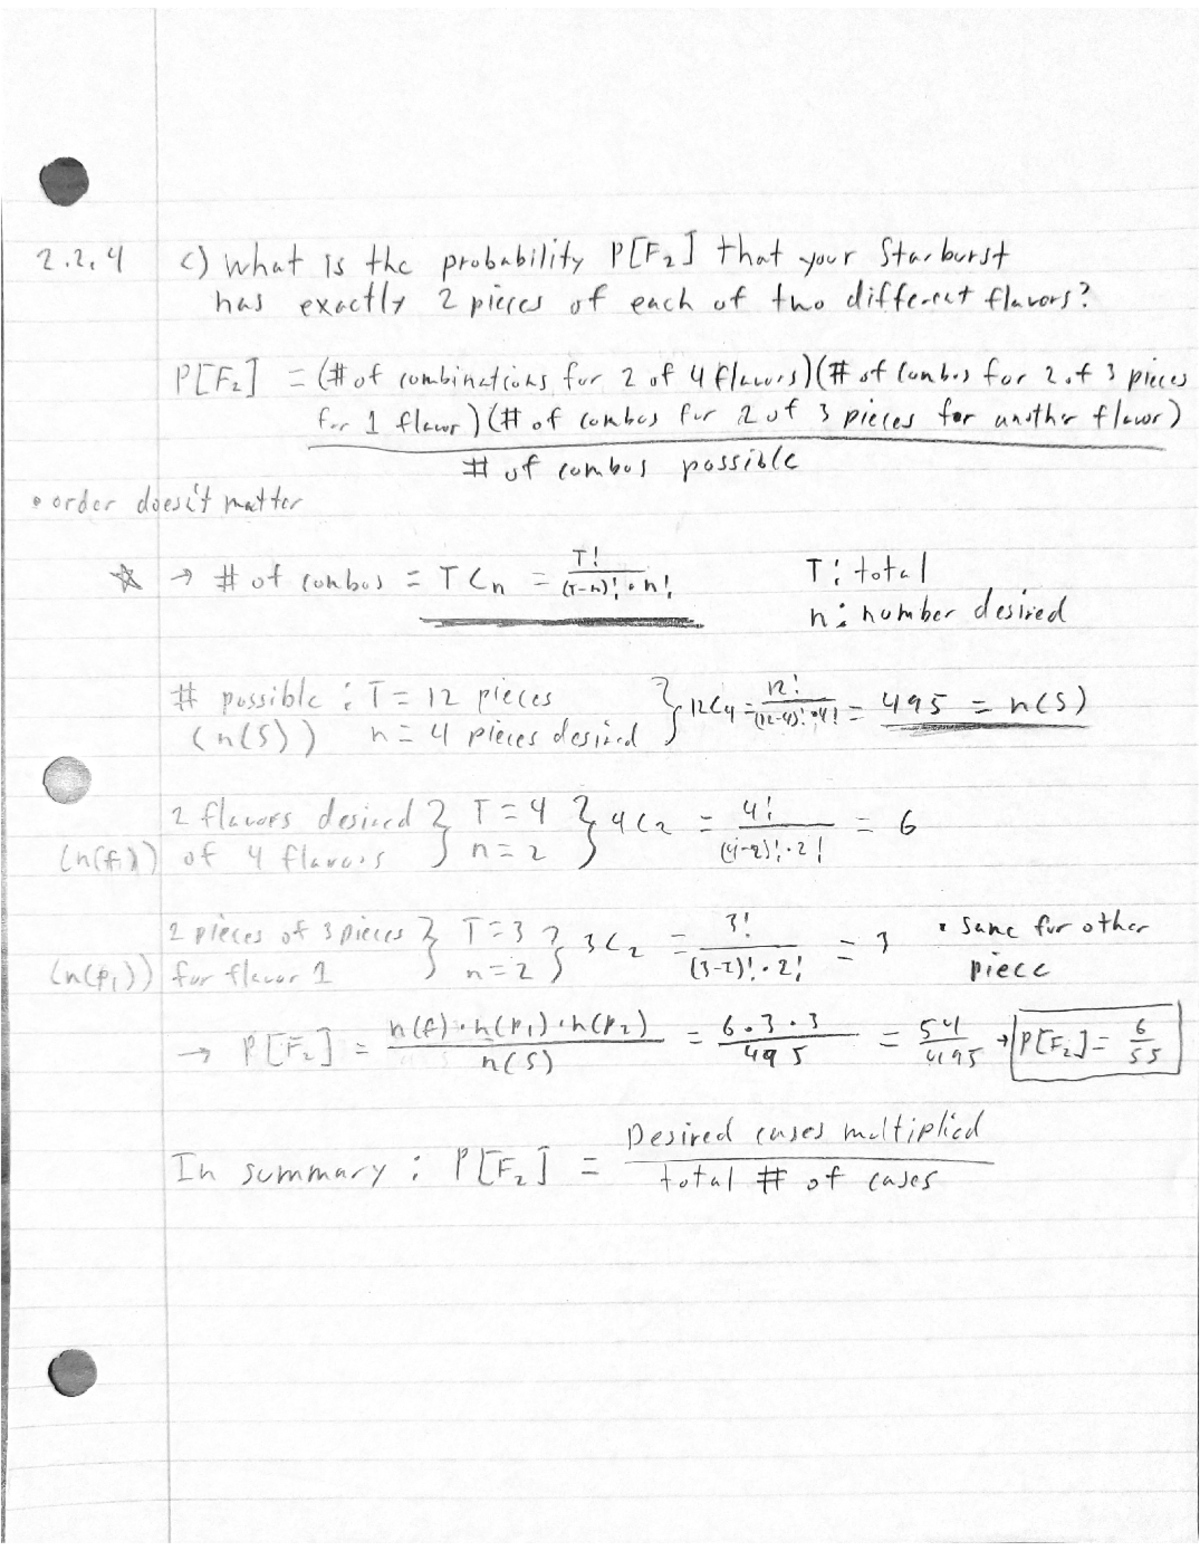 2.2.4 c) What is the probability P[F₂] that your Starburst
has exactly 2 pieces of each of two different flavors?
P[F₂] = (# of combinations for 2 of 4 flavors)(# of combos for 2 of 3 pieces
for 1 flavor)(# of combos for 2 of 3 pieces for another flavor)
# of combos possible
• order doesn't matter
☆ → # of combos = TCn = T!/((T-n)!·n!) T: total
n: number desired
# possible: T = 12 pieces } 12C4 = 12!/((12-4)!·4!) = 495 = n(S)
(n(S)) n = 4 pieces desired
2 flavors desired } T = 4 } 4C2 = 4!/((4-2)!·2!) = 6
(n(f)) of 4 flavors n = 2
2 pieces of 3 pieces } T = 3 } 3C2 = 3!/((3-2)!·2!) = 3 • same for other
(n(p₁)) for flavor 1 n = 2 piece
→ P[F₂] = n(f)·n(p₁)·n(p₂)/n(S) = 6·3·3/495 = 54/495 → P[F₂] = 6/55
In summary: P[F₂] = Desired cases multiplied
total # of cases